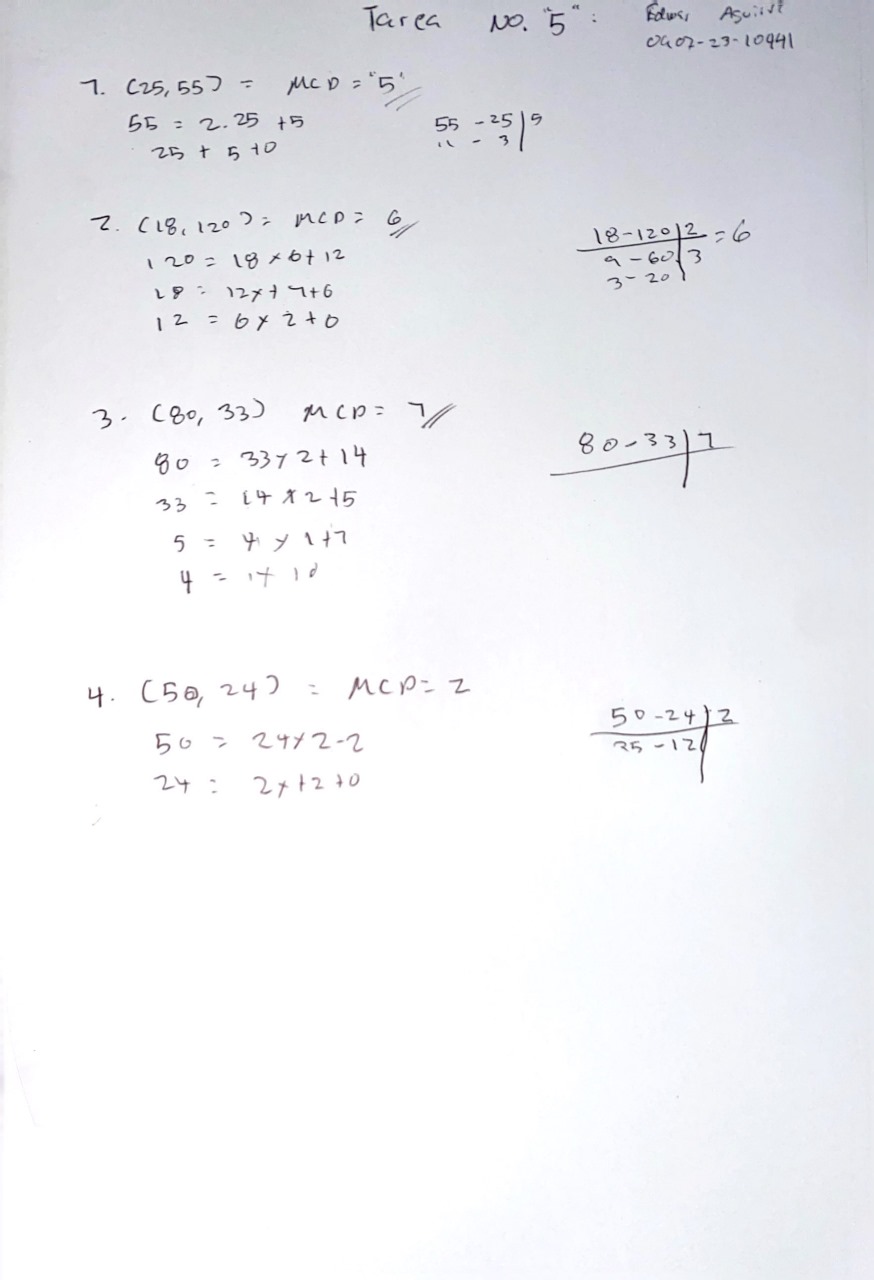 Tarea No. "5" :
0902-23-10941
1. (25,55) = MCD = "5"
55 = 2.25 +5
25 + 5 +0
55 - 25 | 5
11 - 3
2. (18, 120) = MCD = 6
120 = 18 x 6 + 12
18 = 12 x + 1 + 6
12 = 6 x 2 + 0
18-120 | 2 = 6
9 - 60 | 3
3 - 20
3. (80, 33) MCD = 1
80 = 33 x 2 + 14
33 = 14 x 2 + 5
5 = 4 x 1 + 1
4 = 1 +
80-33 | 1
4. (50, 24) = MCD = 2
50 = 24 x 2 - 2
24 = 2 x + 2 + 0
50-24 | 2
25-12